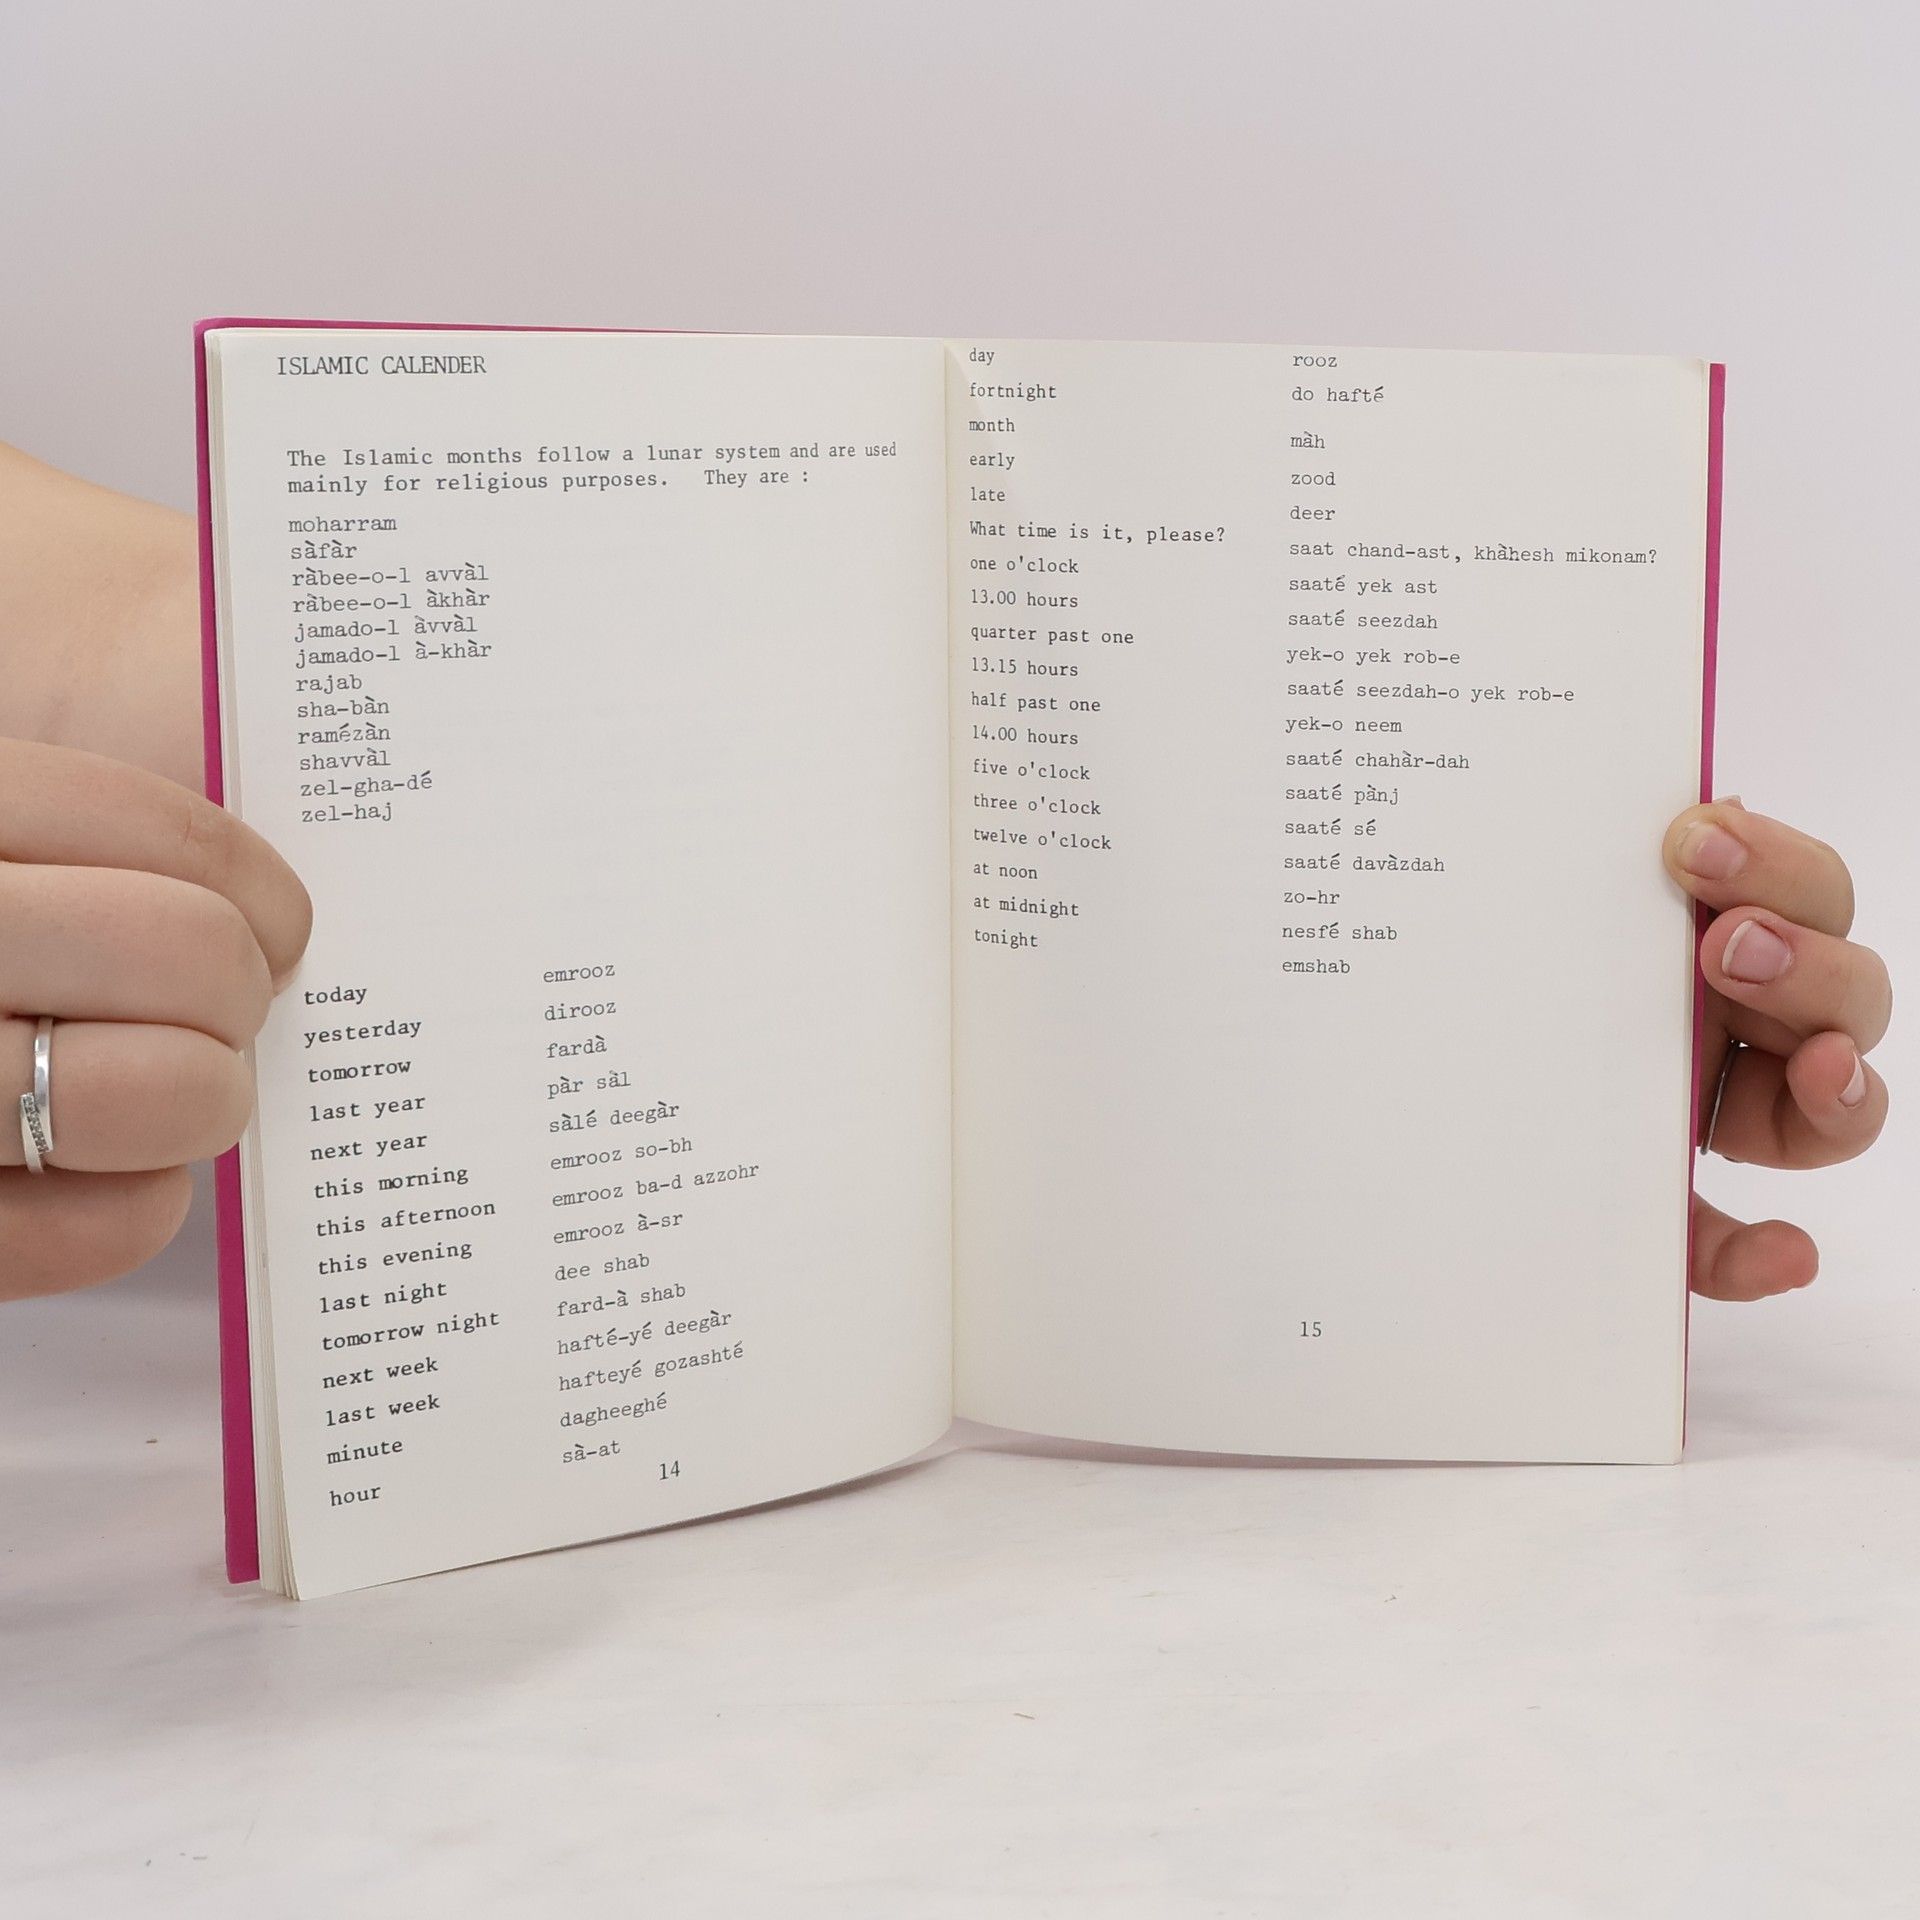 ISLAMIC CALENDER
The Islamic months follow a lunar system and are used
mainly for religious purposes. They are :
moharram
sàfàr
ràbee-o-l avvàl
ràbee-o-l àkhàr
jamado-l àvvàl
jamado-l à-khàr
rajab
sha-bàn
ramézàn
shavvàl
zel-gha-dé
zel-haj
today emrooz
yesterday dirooz
tomorrow fardà
last year pàr sàl
next year sàlé deegàr
this morning emrooz so-bh
this afternoon emrooz ba-d azzohr
this evening emrooz à-sr
last night dee shab
tomorrow night fard-à shab
next week hafté-yé deegàr
last week hafteyé gozashté
minute dagheeghé
hour sà-at
14
day rooz
fortnight do hafté
month màh
early zood
late deer
What time is it, please? saat chand-ast, khàhesh mikonam?
one o'clock saaté yek ast
13.00 hours saaté seezdah
quarter past one yek-o yek rob-e
13.15 hours saaté seezdah-o yek rob-e
half past one yek-o neem
14.00 hours saaté chahàr-dah
five o'clock saaté pànj
three o'clock saaté sé
twelve o'clock saaté davàzdah
at noon zo-hr
at midnight nesfé shab
tonight emshab
15